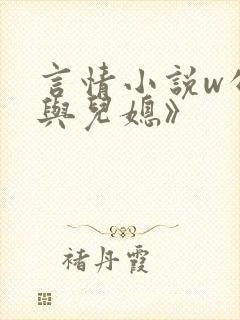 言情小説w
與兒媳》
褚丹霞